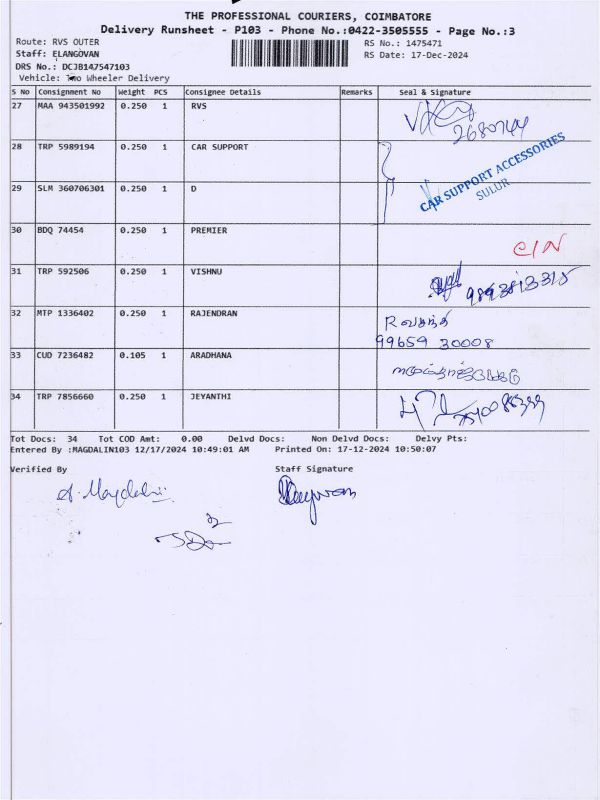 THE PROFESSIONAL COURIERS, COIMBATORE
Delivery Runsheet - P103 - Phone No.:0422-3505555 - Page No.:3
Route: RVS OUTER
RS No.: 1475471
Staff: ELANGOVAN
RS Date: 17-Dec-2024
DRS No.: DCJB147547103
Vehicle: Two Wheeler Delivery
S No Consignment No Weight PCS Consignee Details Remarks Seal & Signature
27 MAA 943501992 0.250 1 RVS
28 TRP 5989194 0.250 1 CAR SUPPORT
CAR SUPPORT ACCESSORIES
SULUR
29 SLM 360706301 0.250 1 D
30 BDQ 74454 0.250 1 PREMIER
C/N
31 TRP 592506 0.250 1 VISHNU
32 MTP 1336402 0.250 1 RAJENDRAN
R வசந்தி
99659 30008
33 CUD 7236482 0.105 1 ARADHANA
34 TRP 7856660 0.250 1 JEYANTHI
Tot Docs: 34 Tot COD Amt: 0.00 Delvd Docs: Non Delvd Docs: Delvy Pts:
Entered By :MAGDALIN103 12/17/2024 10:49:01 AM Printed On: 17-12-2024 10:50:07
Verified By Staff Signature